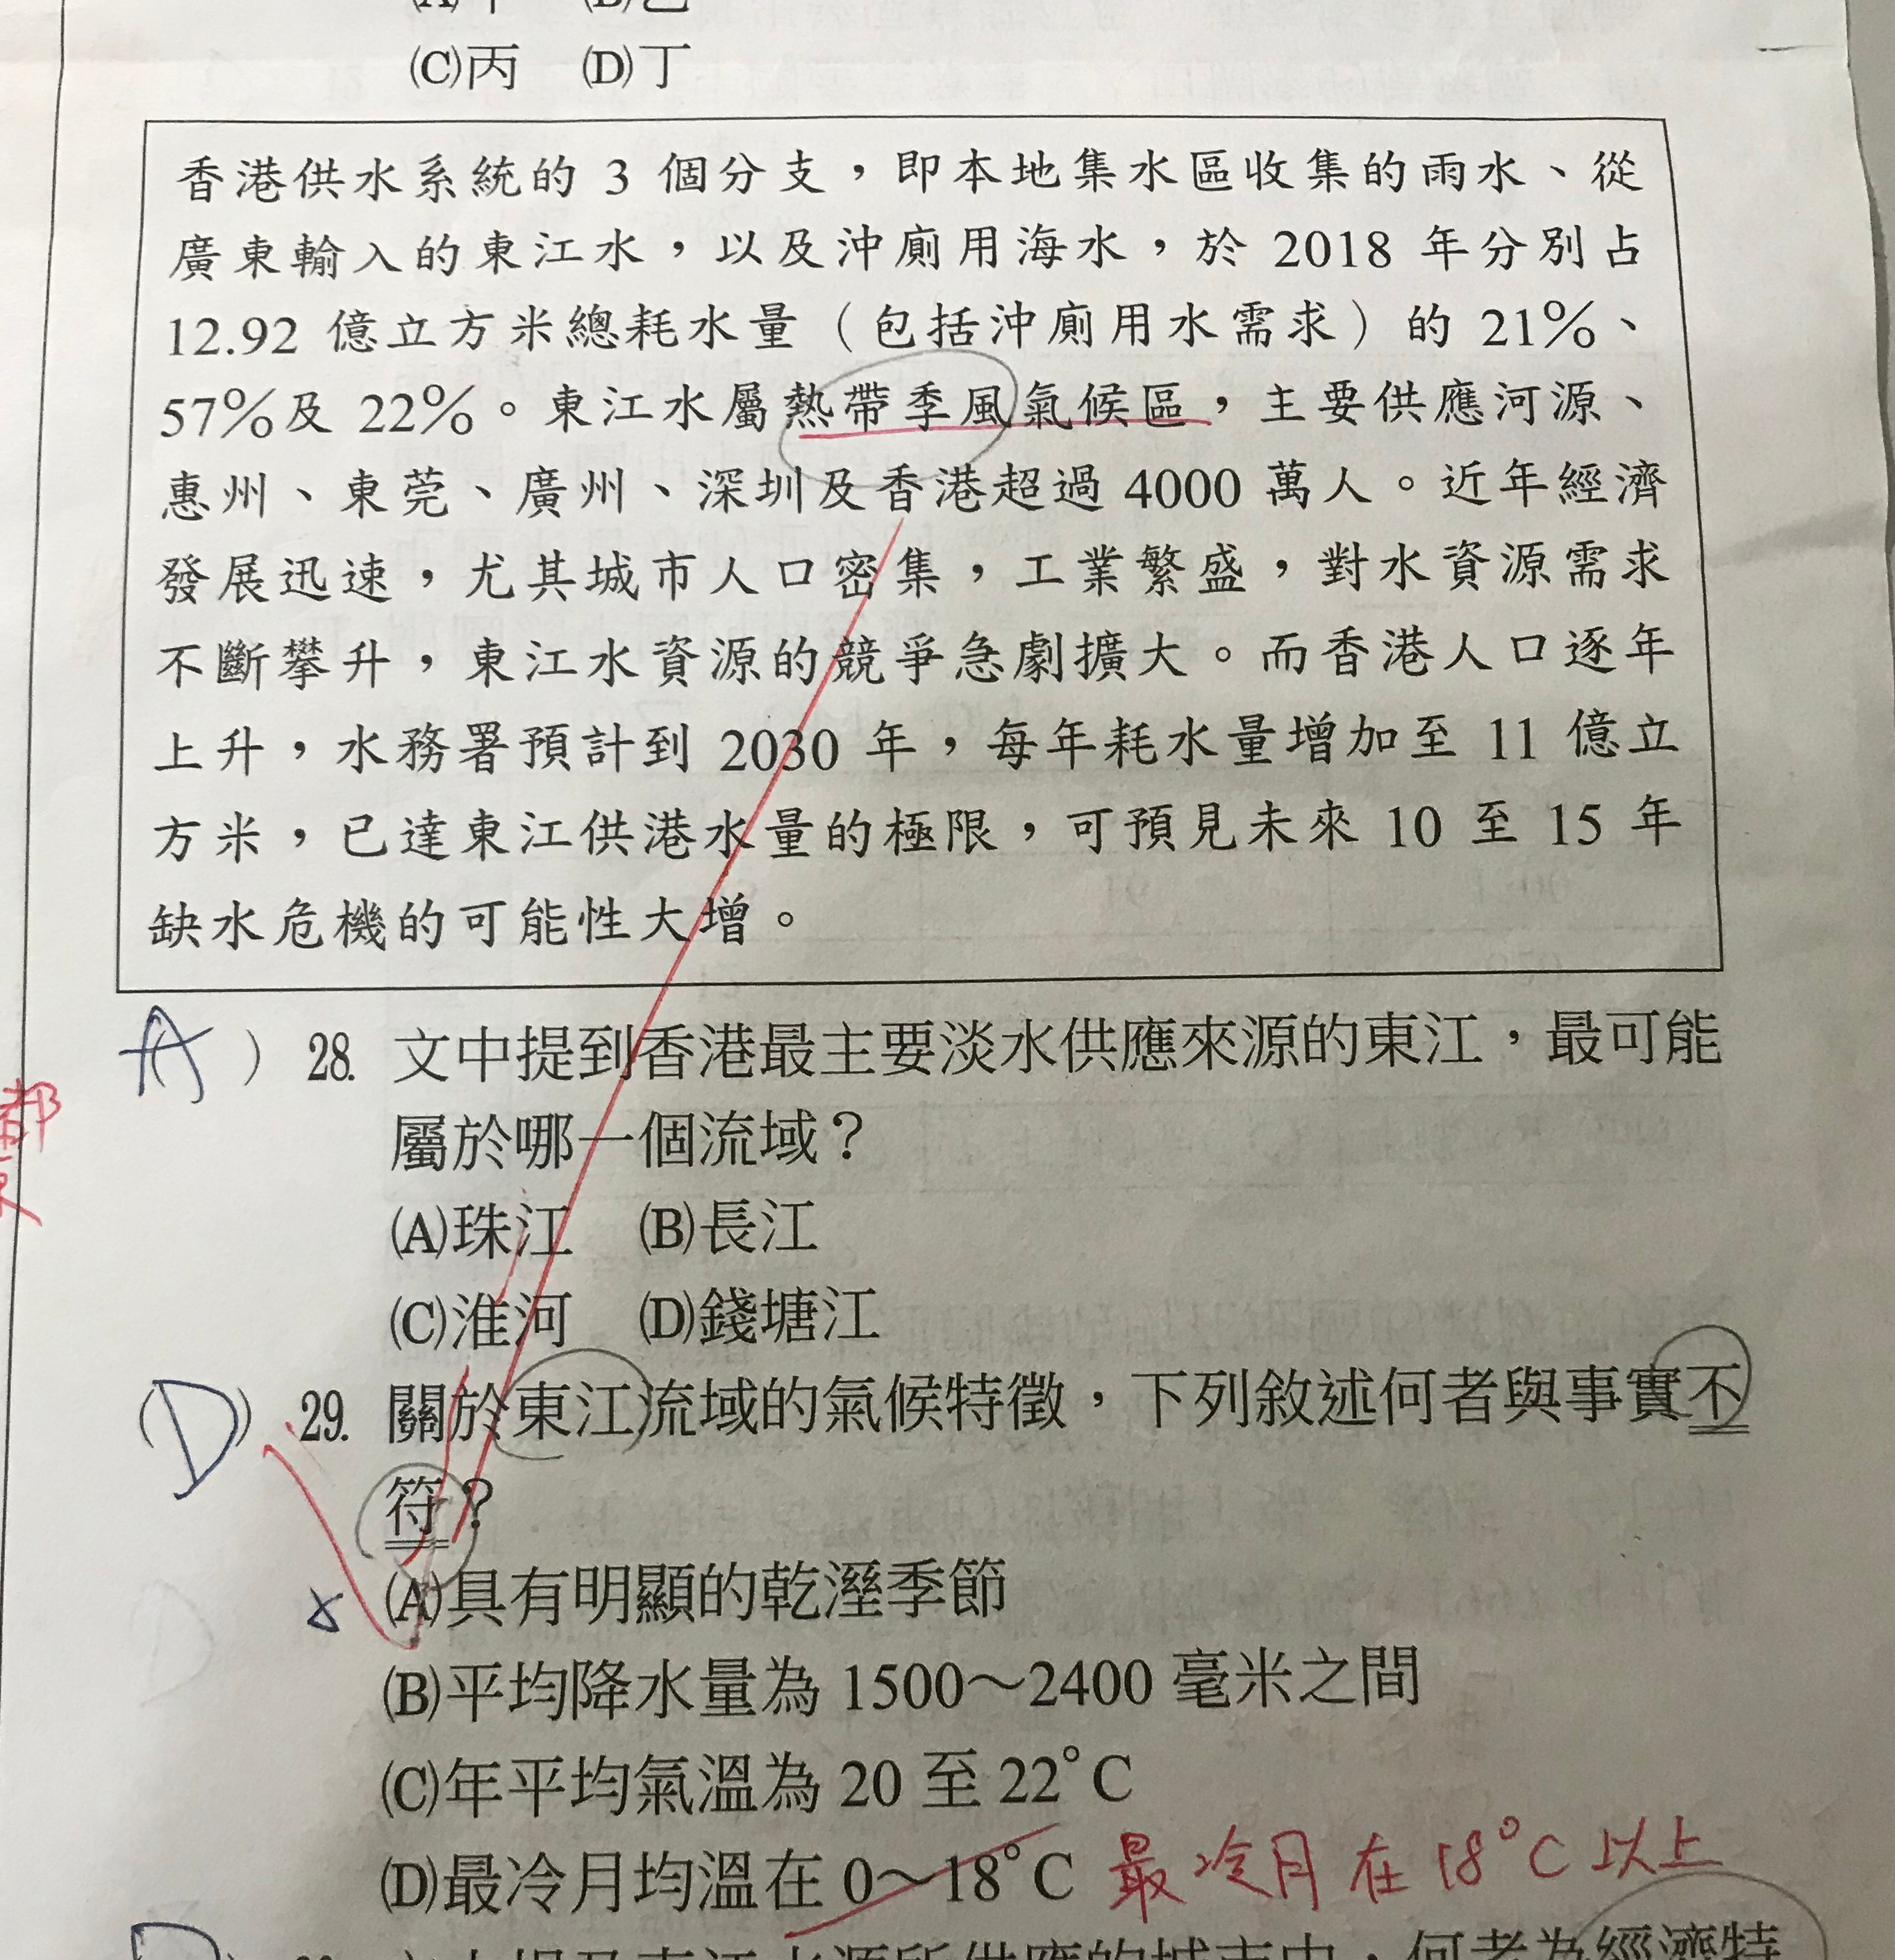 (C)丙 (D)丁
香港供水系統的 3 個分支，即本地集水區收集的雨水、從
廣東輸入的東江水，以及沖廁用海水，於 2018 年分別占
12.92 億立方米總耗水量（包括沖廁用水需求）的 21%、
57%及 22%。東江水屬熱帶季風氣候區，主要供應河源、
惠州、東莞、廣州、深圳及香港超過 4000 萬人。近年經濟
發展迅速，尤其城市人口密集，工業繁盛，對水資源需求
不斷攀升，東江水資源的競爭急劇擴大。而香港人口逐年
上升，水務署預計到 2030 年，每年耗水量增加至 11 億立
方米，已達東江供港水量的極限，可預見未來 10 至 15 年
缺水危機的可能性大增。
(A) 28. 文中提到香港最主要淡水供應來源的東江，最可能
屬於哪一個流域？
(A)珠江 (B)長江
(C)淮河 (D)錢塘江
(D) 29. 關於東江流域的氣候特徵，下列敘述何者與事實不
符？
(A)具有明顯的乾溼季節
(B)平均降水量為 1500～2400 毫米之間
(C)年平均氣溫為 20 至 22°C
(D)最冷月均溫在 0～18°C 最冷月在18°C以上